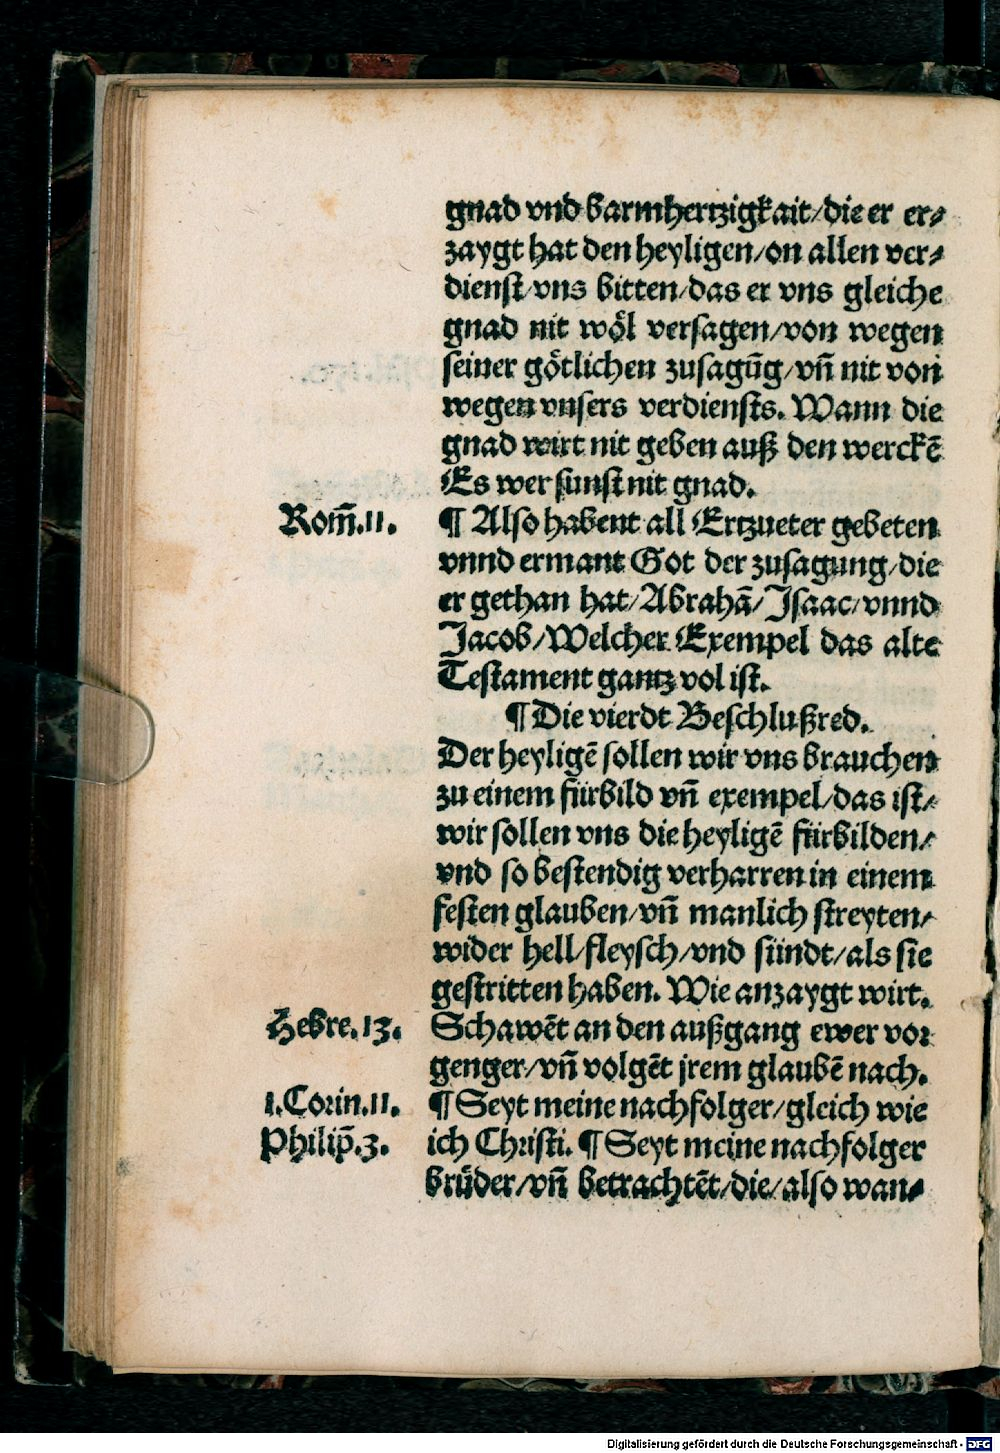 gnad vnd barmhertzigkait/die er er⸗
zaygt hat den heyligen/on allen ver⸗
dienst/vns bitten/das er vns gleiche
gnad nit woͤl versagen/von wegen
seiner goͤtlichen zusagūg/vn̄ nit von
wegen vnsers verdiensts. Wann die
gnad wirt nit geben auß den werckē
Es wer sunst nit gnad.
Rom̄.11. ¶ Also habent all Ertzueter gebeten
vnnd ermant Got der zusagung/die
er gethan hat/Abrahā/Isaac/vnnd
Jacob/Welcher Exempel das alte
Testament gantz vol ist.
¶ Die vierdt Beschlußred.
Der heyligē sollen wir vns brauchen
zu einem fürbild vn̄ exempel/das ist/
wir sollen vns die heyligē fürbilden/
vnd so bestendig verharren in einem
festen glauben/vn̄ manlich streyten/
wider hell/fleysch/vnd sündt/als sie
gestritten haben. Wie anzaygt wirt.
Hebre.13. Schawēt an den außgang ewer vor
genger/vn̄ volgēt jrem glaubē nach.
1.Corin.11. ¶ Seyt meine nachfolger/gleich wie
Philip̄.3. ich Christi. ¶ Seyt meine nachfolger
bruͤder/vn̄ betrachtēt/die/also wan⸗
Digitalisierung gefördert durch die Deutsche Forschungsgemeinschaft - DFG